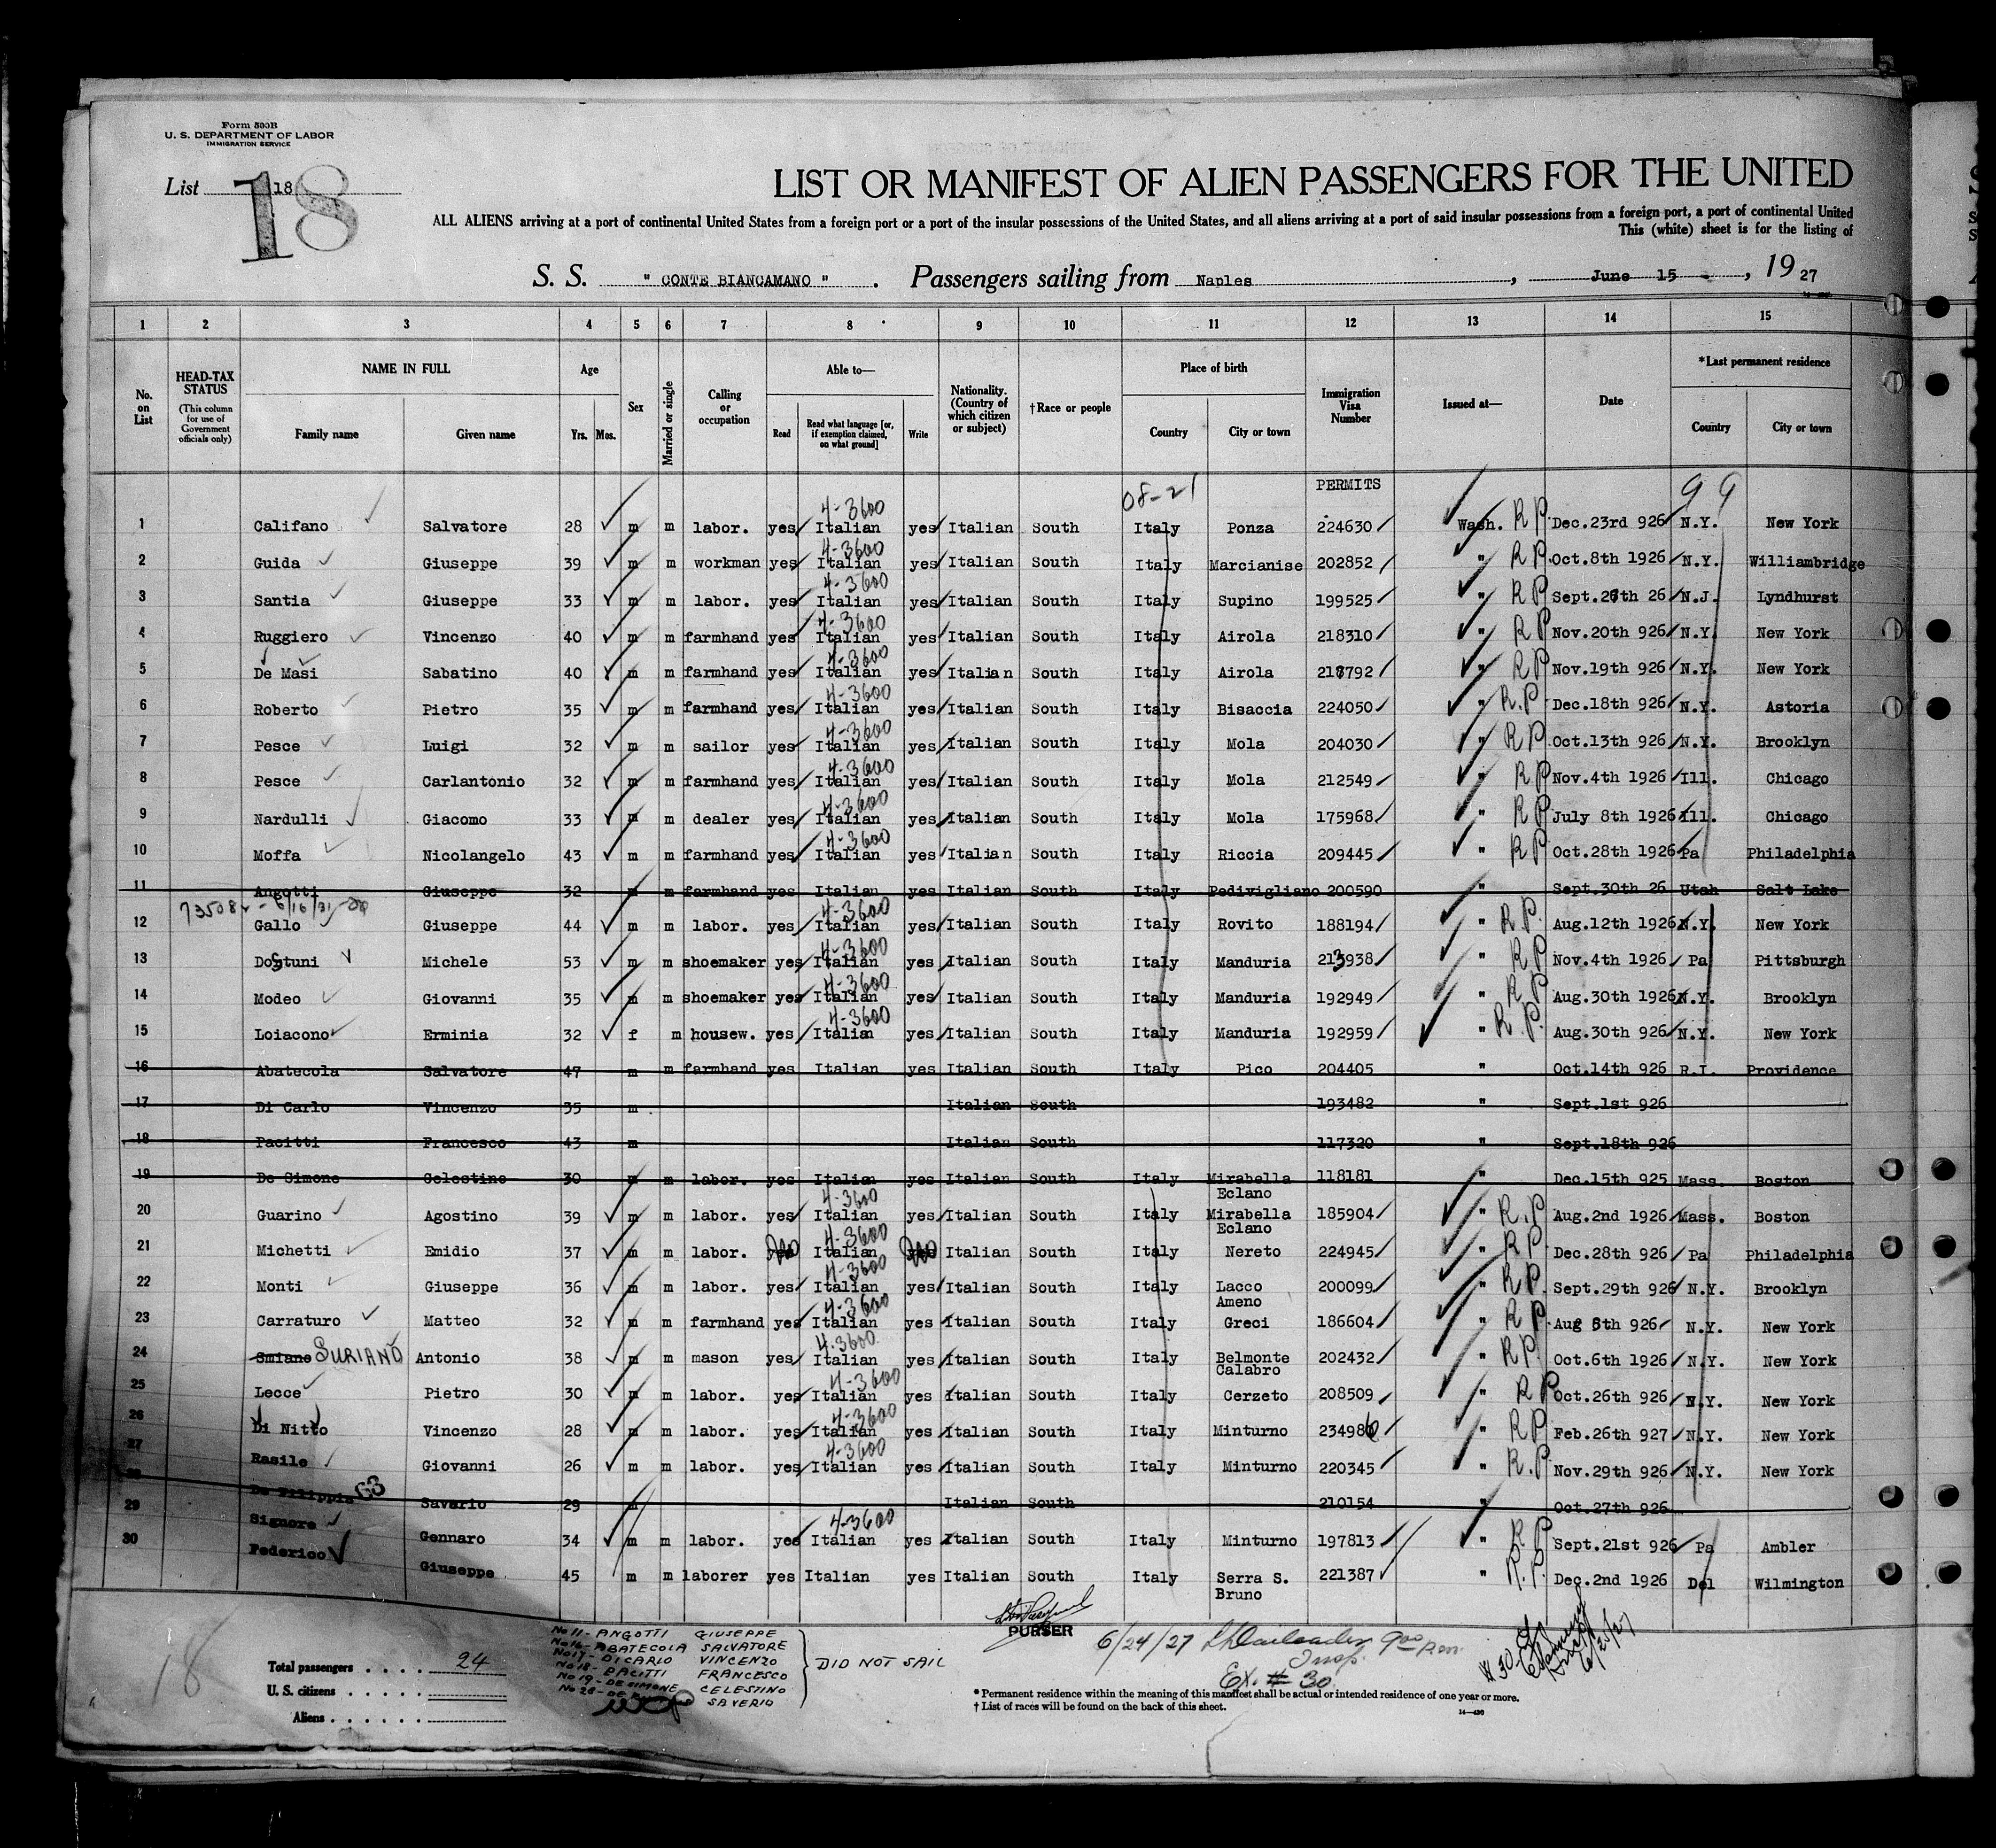 Form 500B
U. S. DEPARTMENT OF LABOR
IMMIGRATION SERVICE
List 18
18
LIST OR MANIFEST OF ALIEN PASSENGERS FOR THE UNITED
ALL ALIENS arriving at a port of continental United States from a foreign port or a port of the insular possessions of the United States, and all aliens arriving at a port of said insular possessions from a foreign port, a port of continental United
This (white) sheet is for the listing of
S. S. " CONTE BIANCAMANO " . Passengers sailing from Naples , June 15 , 19 27
1 2 3 4 5 6 7 8 9 10 11 12 13 14 15
No. on List
HEAD-TAX STATUS (This column for use of Government officials only)
NAME IN FULL Family name Given name
Age Yrs. Mos.
Sex
Married or single
Calling or occupation
Able to— Read Read what language [or, if exemption claimed, on what ground] Write
Nationality. (Country of which citizen or subject)
†Race or people
Place of birth Country City or town
Immigration Visa Number
Issued at—
Date
*Last permanent residence Country City or town
08-21 PERMITS 99
1 Califano Salvatore 28 m m labor. yes 4-3600 Italian yes Italian South Italy Ponza 224630 Wash. R P Dec.23rd 926 N.Y. New York
2 Guida Giuseppe 39 m m workman yes 4-3600 Italian yes Italian South Italy Marcianise 202852 " R P Oct.8th 1926 N.Y. Williambridge
3 Santia Giuseppe 33 m m labor. yes 4-3600 Italian yes Italian South Italy Supino 199525 " R P Sept.27th 26 N.J. Lyndhurst
4 Ruggiero Vincenzo 40 m m farmhand yes 4-3600 Italian yes Italian South Italy Airola 218310 " R P Nov.20th 926 N.Y. New York
5 De Masi Sabatino 40 m m farmhand yes 4-3600 Italian yes Italian South Italy Airola 218792 " R P Nov.19th 926 N.Y. New York
6 Roberto Pietro 35 m m farmhand yes 4-3600 Italian yes Italian South Italy Bisaccia 224050 " R.P Dec.18th 926 N.Y. Astoria
7 Pesce Luigi 32 m m sailor yes 4-3600 Italian yes Italian South Italy Mola 204030 " R P Oct.13th 926 N.Y. Brooklyn
8 Pesce Carlantonio 32 m m farmhand yes 4-3600 Italian yes Italian South Italy Mola 212549 " R P Nov.4th 1926 Ill. Chicago
9 Nardulli Giacomo 33 m m dealer yes 4-3600 Italian yes Italian South Italy Mola 175968 " R P July 8th 1926 Ill. Chicago
10 Moffa Nicolangelo 43 m m farmhand yes 4-3600 Italian yes Italian South Italy Riccia 209445 " R P Oct.28th 1926 Pa Philadelphia
11 Angotti Giuseppe 32 m m farmhand yes Italian yes Italian South Italy Pedivigliano 200590 " Sept.30th 26 Utah Salt Lake
12 Gallo Giuseppe 44 m m labor. yes 4-3600 Italian yes Italian South Italy Rovito 188194 " R.P. Aug.12th 1926 N.Y. New York
13 Dostuni Michele 53 m m shoemaker yes 4-3600 Italian yes Italian South Italy Manduria 213938 " R P Nov.4th 1926 Pa Pittsburgh
14 Modeo Giovanni 35 m m shoemaker yes 4-3600 Italian yes Italian South Italy Manduria 192949 " R P Aug.30th 1926 N.Y. Brooklyn
15 Loiacono Erminia 32 f m housew. yes 4-3600 Italian yes Italian South Italy Manduria 192959 " R.P. Aug.30th 926 N.Y. New York
16 Abatecola Salvatore 47 m m farmhand yes Italian yes Italian South Italy Pico 204405 " Oct.14th 926 R.I. Providence
17 Di Carlo Vincenzo 35 m Italian South 193482 " Sept.1st 926
18 Pacitti Francesco 43 m Italian South 117320 " Sept.18th 926
19 De Simone Celestino 30 m m labor. yes Italian yes Italian South Italy Mirabella Eclano 118181 " Dec.15th 925 Mass. Boston
20 Guarino Agostino 39 m m labor. yes 4-3600 Italian yes Italian South Italy Mirabella Eclano 185904 " R.P Aug.2nd 1926 Mass. Boston
21 Michetti Emidio 37 m m labor. no 4-3600 Italian no Italian South Italy Nereto 224945 " R P Dec.28th 926 Pa Philadelphia
22 Monti Giuseppe 36 m m labor. yes 4-3600 Italian yes Italian South Italy Lacco Ameno 200099 " R P. Sept.29th 926 N.Y. Brooklyn
23 Carraturo Matteo 32 m m farmhand yes 4-3600 Italian yes Italian South Italy Greci 186604 " R P Aug 8th 926 N.Y. New York
24 Smiano SURIANO Antonio 38 m m mason yes 4-3600 Italian yes Italian South Italy Belmonte Calabro 202432 " R P. Oct.6th 1926 N.Y. New York
25 Lecce Pietro 30 m m labor. yes 4-3600 Italian yes Italian South Italy Cerzeto 208509 " R P Oct.26th 926 N.Y. New York
26 Di Nitto Vincenzo 28 m m labor. yes 4-3600 Italian yes Italian South Italy Minturno 234986 " R P Feb.26th 927 N.Y. New York
27 Rasile Giovanni 26 m m labor. yes 4-3600 Italian yes Italian South Italy Minturno 220345 " R.P Nov.29th 926 N.Y. New York
28 De Filippis Saverio 29 m Italian South 210154 " Oct.27th 926
29 Signore Gennaro 34 m m labor. yes 4-3600 Italian yes Italian South Italy Minturno 197813 " R P Sept.21st 926 Pa Ambler
30 Federico Giuseppe 45 m m laborer yes Italian yes Italian South Italy Serra S. Bruno 221387 " R.P. Dec.2nd 1926 Del Wilmington
PURSER
18
Total passengers . . . . 24
U. S. citizens . . . . .
Aliens . . . . . .
No 11 - ANGOTTI GIUSEPPE
No 16 - ABATECOLA SALVATORE
No 17 - DI CARLO VINCENZO
No 18 - PACITTI FRANCESCO
No 19 - DE SIMONE CELESTINO
No 28 - DE SAVERIO
DID NOT SAIL
6/24/27
Insp.
Ex. # 30
# 30
6/25/27
* Permanent residence within the meaning of this manifest shall be actual or intended residence of one year or more.
† List of races will be found on the back of this sheet.
14—430